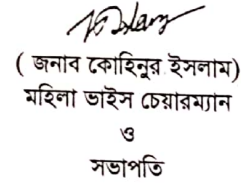 ( জনাব কোহিনুর ইসলাম)
মহিলা ভাইস চেয়ারম্যান
ও
সভাপতি